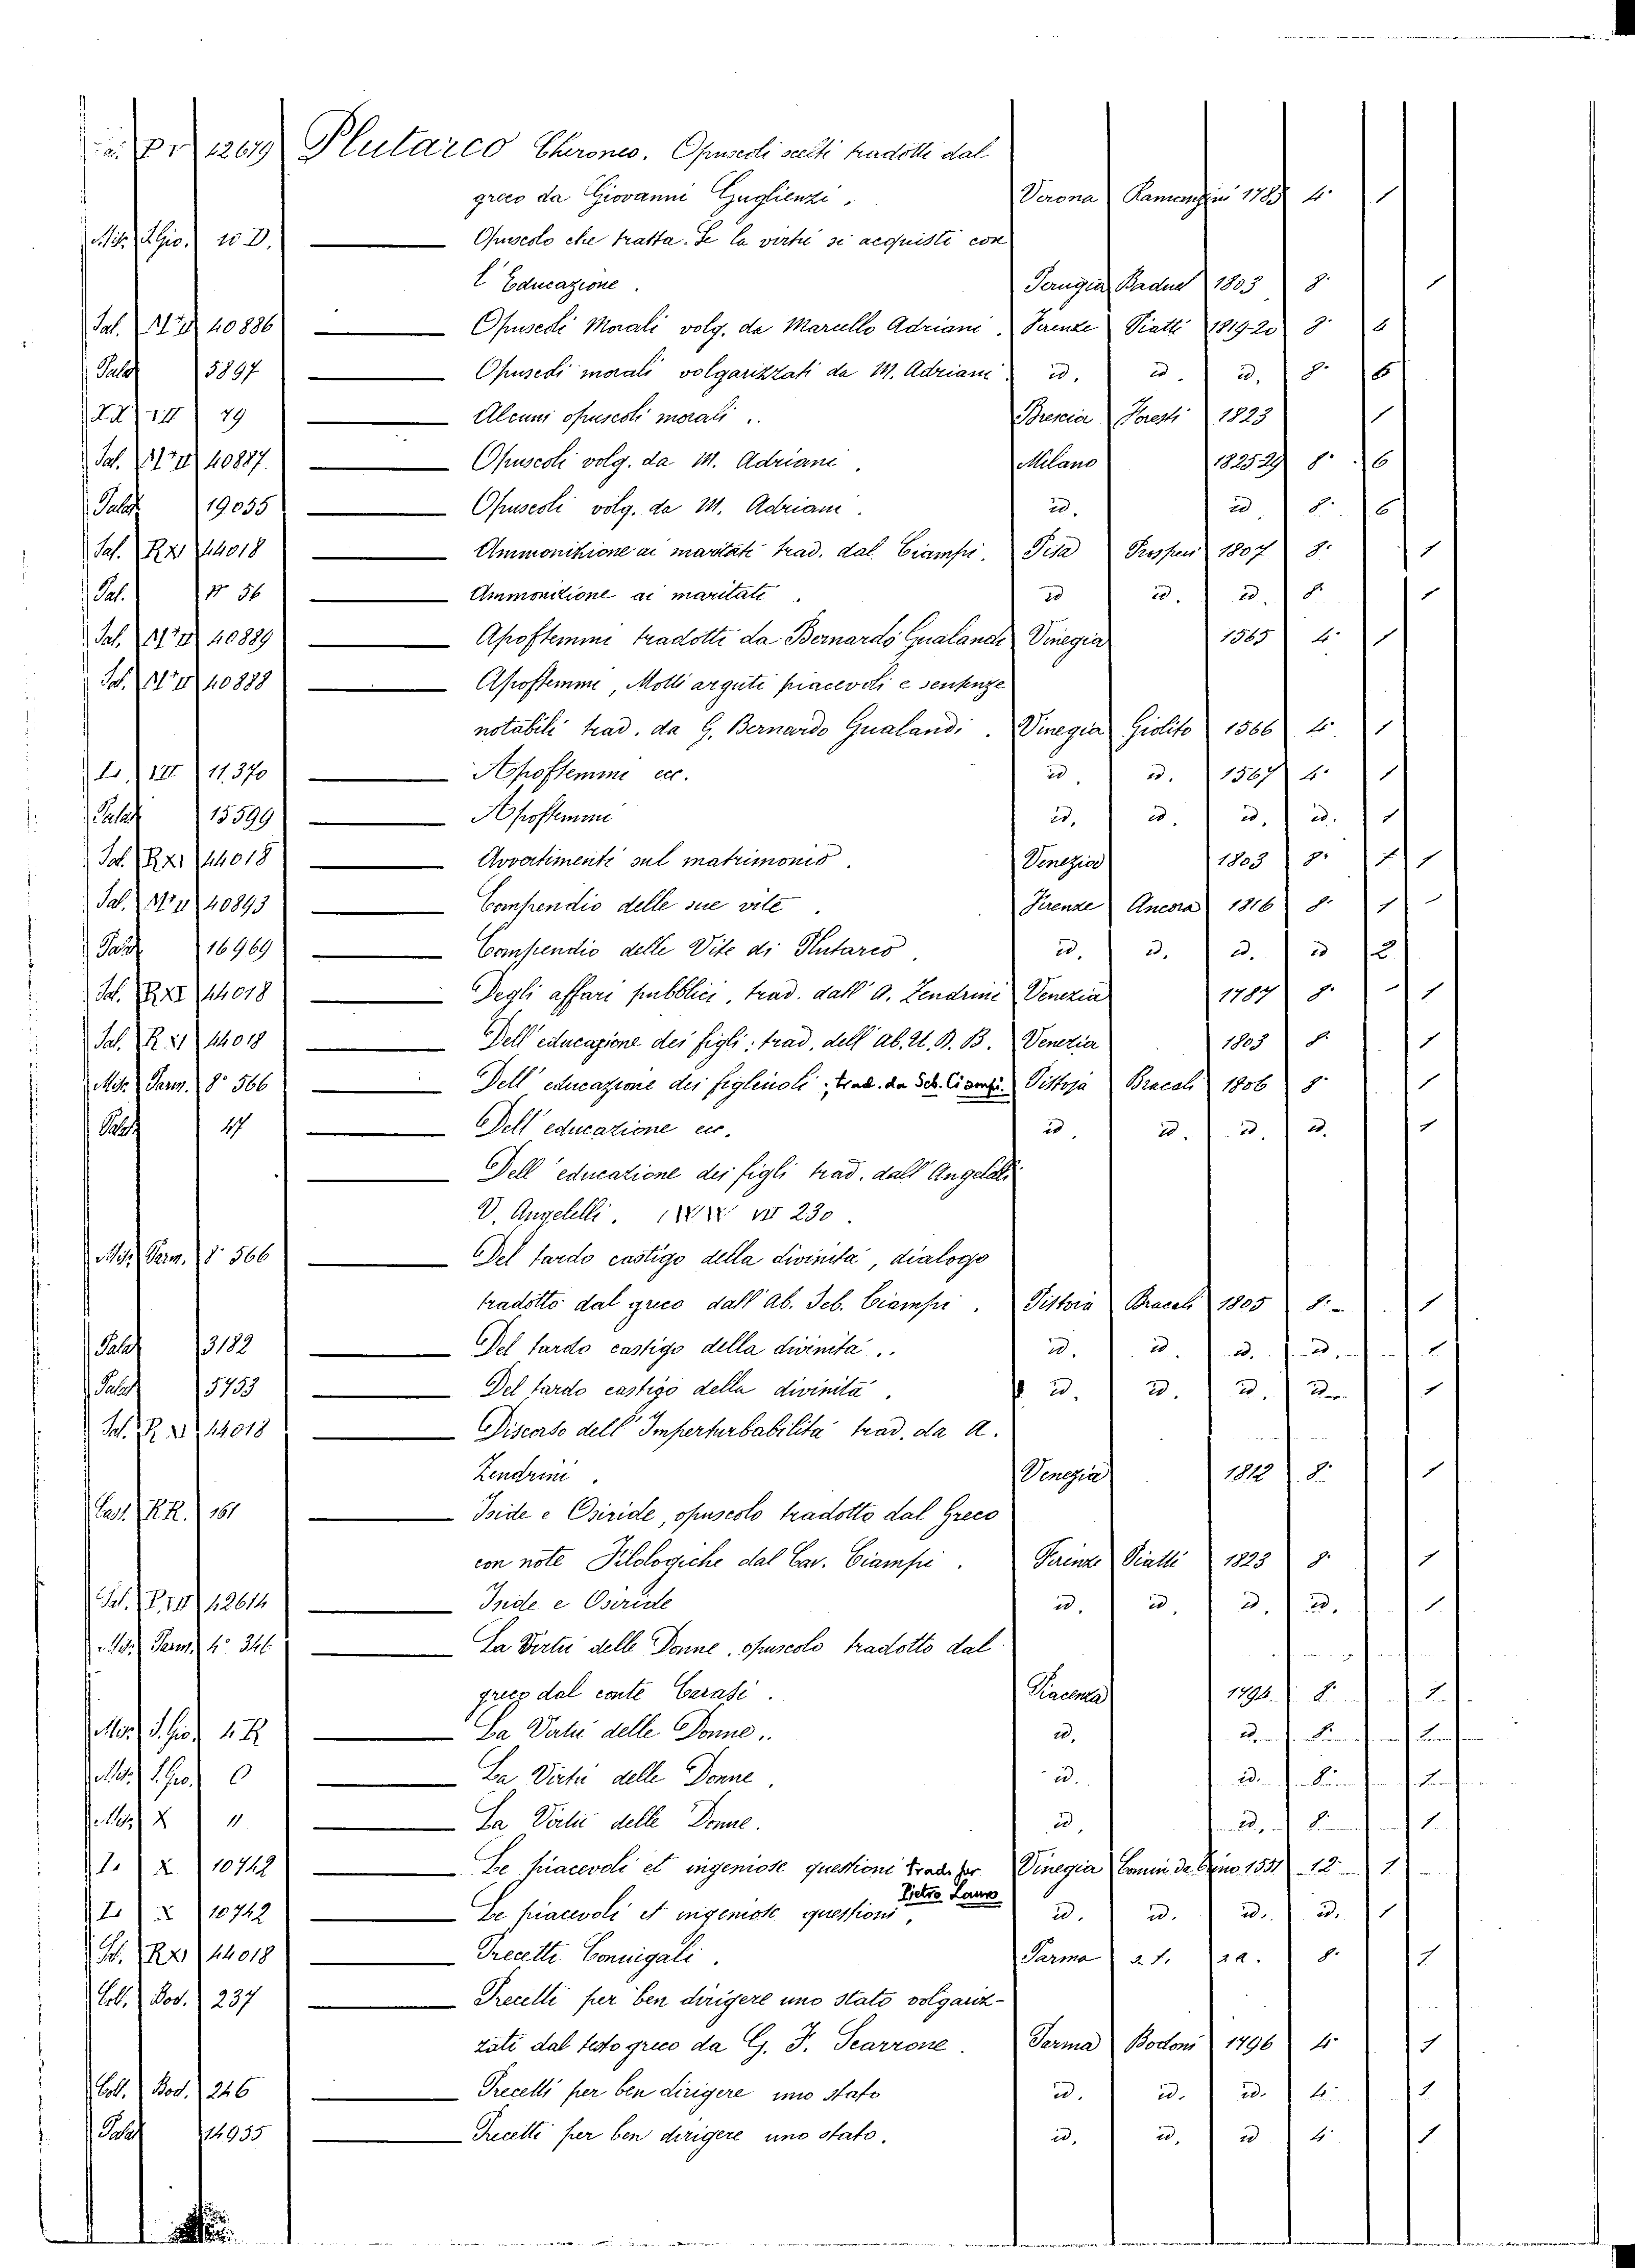 12619 Plutarco Cheroneo. Opuscoli scelti tradotti dal
greco da Giovanni Guglienzi. Verona 1785 4° 1
Opuscolo che tratta. Se la virtù si acquisti con
l'Educazione. Perugia Baduel 1803 8° 1
Pal. 40886 Opuscoli Morali volg. da Marcello Adriani. Firenze Piatti 1819-20 8° 6
Palat 5897 Opuscoli morali volgarizzati da M. Adriani id. id. id. 8° 6
79 Alcuni opuscoli morali. Brescia 1823 1
Pal. 40887 Opuscoli volg. da M. Adriani. Milano 1825-29 8° 6
Palat 19055 Opuscoli volg. da M. Adriani. id. id 8° 6
Pal. RXI 44018 Ammonizione ai maritati trad. dal Ciampi. Pisa Prosperi 1807 8° 1
Pal. 56 Ammonizione ai maritati. id id. id. 8° 1
Pal. 40889 Apoftemmi tradotti da Bernardo Gualandi Vinegia 1565 4° 1
Pal. 40888 Apoftemmi, Motti arguti piacevoli e sentenze
notabili trad. da G. Bernardo Gualandi. Vinegia Giolito 1566 4° 1
11.370 Apoftemmi ecc. id. id. 1567 4° 1
Palat 15599 Apoftemmi id. id. id. id. 1
Pal. RXI 44018 Avvertimenti sul matrimonio. Venezia 1803 8° 1
Pal. 40893 Compendio delle sue vite. Firenze Ancora 1816 8° 1
Palat 16969 Compendio delle Vite di Plutarco. id. id. id. id 2
Pal. RXI 44018 Degli affari pubblici, trad. dall' A. Zendrini Venezia 1787 8° 1
Pal. RXI 44018 Dell'educazione dei figli: trad. dell'ab. U. B. B. Venezia 1803 8° 1
Mis. Parm. 8° 566 Dell'educazione dei figliuoli; trad. da Seb. Ciampi. Pistoja Bracali 1806 8° 1
Palat 47 Dell'educazione ecc. id. id. id. id. 1
Dell'educazione dei figli trad. dall'Angelelli
V. Angelelli. 230.
Mis. Parm. 8° 566 Del tardo castigo della divinità, dialogo
tradotto dal greco dall'ab. Seb. Ciampi. Pistoia Bracali 1805 8° 1
Palat 3182 Del tardo castigo della divinità. id. id. id. id. 1
Palat 5753 Del tardo castigo della divinità. id. id. id. id. 1
Pal. R XI 44018 Discorso dell'Imperturbabilità trad. da A.
Zendrini. Venezia 1812 8° 1
Cast. R.R. 161 Iside e Osiride, opuscolo tradotto dal Greco
con note Filologiche dal Cav. Ciampi. Firenze Piatti 1823 8° 1
Pal. 42614 Iside e Osiride id. id. id. id. 1
Mis. Parm. 4° 346 La Virtù delle Donne, opuscolo tradotto dal
greco dal conte Carasi. Piacenza 8° 1
La Virtù delle Donne. id. id. 8° 1
La Virtù delle Donne. id. id. 8° 1
Mis. X 11 La Virtù delle Donne. id. id. 8° 1
X 10742 Le piacevoli et ingeniose questioni trad. per Vinegia Comin da Trino 1551 12° 1
Pietro Lauro
X 10742 Le piacevoli et ingeniose questioni, id. id. id. id. 1
Pal. RXI 44018 Precetti Conuigali. Parma s. t. s. a. 8° 1
Coll. Bod. 237 Precetti per ben dirigere uno stato volgariz-
zati dal testo greco da G. F. Scarrone. Parma Bodoni 1796 4° 1
Coll. Bod. 246 Precetti per ben dirigere uno stato id. id. id. 4° 1
Palat 14935 Precetti per ben dirigere uno stato. id. id. id 4° 1